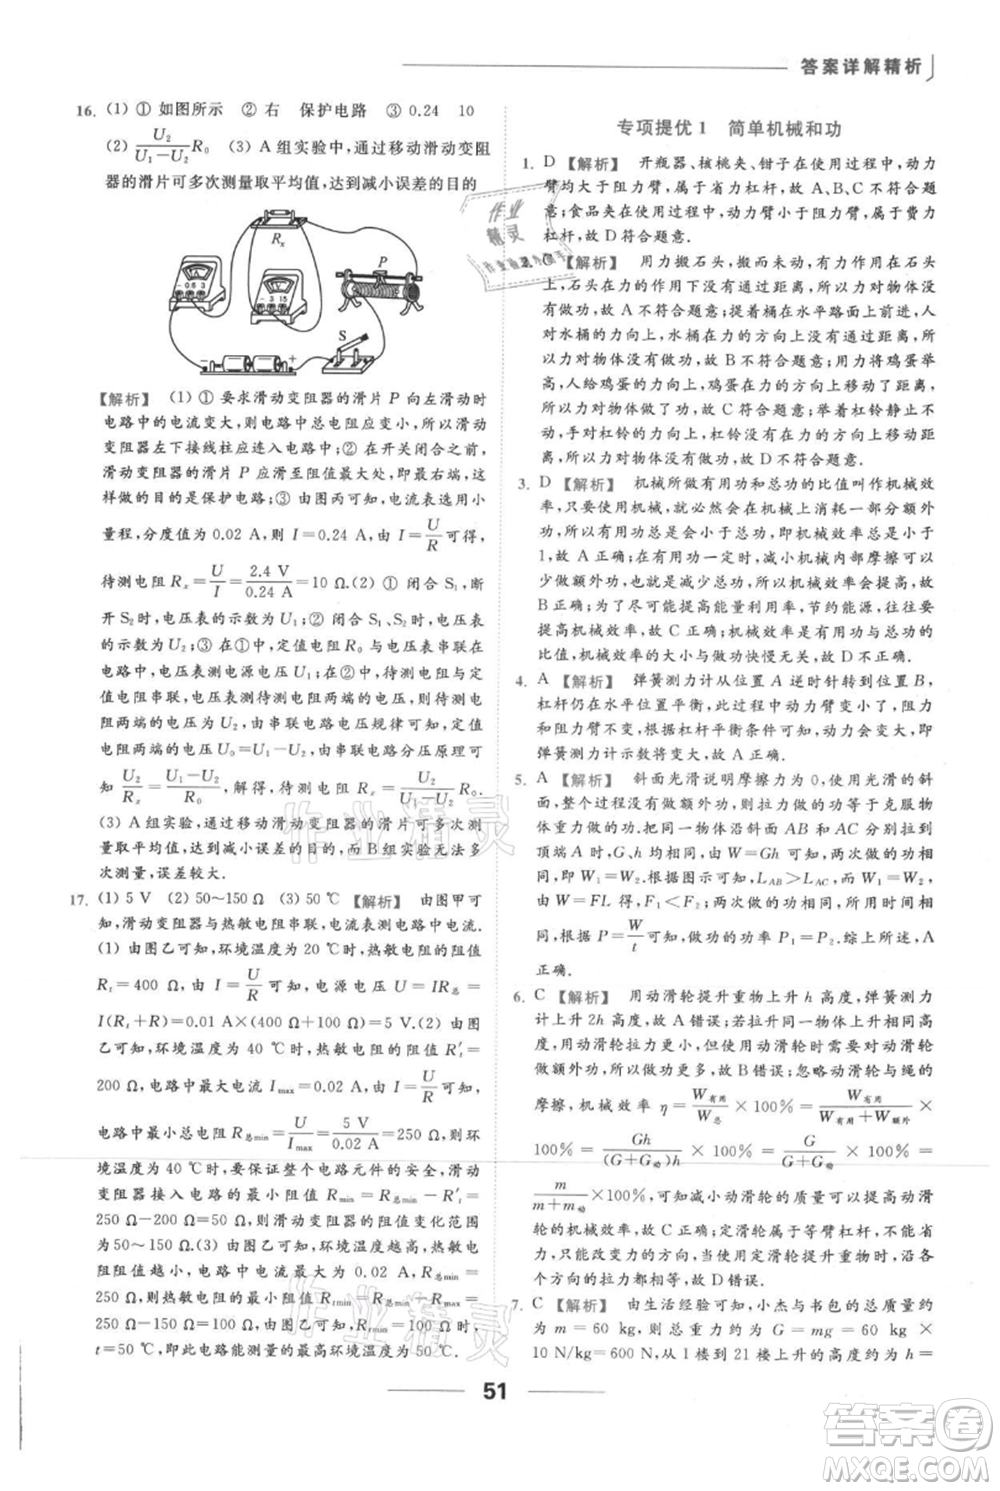 答案详解精析
16. (1) ① 如图所示 ② 右 保护电路 ③ 0.24 10
(2) U₂/(U₁−U₂) R₀ (3) A 组实验中,通过移动滑动变阻
器的滑片可多次测量取平均值,达到减小误差的目的
Rₓ
P
S
−0.6 3
−3 15
+ −
【解析】 (1) ① 要求滑动变阻器的滑片 P 向左滑动时
电路中的电流变大,则电路中总电阻应变小,故应将
滑动变阻器左下接线柱应连入电路中;② 在开关闭合前,
滑动变阻器的滑片 P 应滑至阻值最大处,即最右端,
这样做的目的是保护电路;③ 由图丙可知,电流表选用小
量程,分度值为 0.02 A,则 I=0.24 A,由 I=U/R 可得,
待测电阻 Rₓ=U/I=2.4 V/0.24 A=10 Ω.(2) ① 闭合 S₁,断
开 S₂时,电压表的示数为 U₁;② 闭合 S₁、S₂时,电压表
的示数为 U₂;③ 在①中,定值电阻 R₀ 和待测电阻串
联,电压表测电源电压,即电源电压为 U₁;在②中,定值
电阻串联,电压表测待测电阻两端的电压,即待测电
阻两端的电压为 U₂,由串联电路电压规律可知,定值
电阻两端的电压 U₀=U₁−U₂,由串联电路分压原理可
知 U₂/Rₓ=(U₁−U₂)/R₀,解得,待测电阻 Rₓ=U₂/(U₁−U₂) R₀.
(3) A 组实验,通过移动滑动变阻器的滑片可多次测量
取平均值,达到减小误差的目的,而 B 组实验无法多次
测量,误差较大.
17. (1) 5 V (2) 50~150 Ω (3) 50 ℃ 【解析】 由图甲可
知,滑动变阻器与热敏电阻串联,电流表测电路中电流.
(1) 由图乙可知,环境温度为 20 ℃时,热敏电阻的阻值
Rₜ=400 Ω,由 I=U/R 可知,电源电压 U=IR总=
I(Rₜ+R)=0.01 A×(400 Ω+100 Ω)=5 V.(2) 由图
乙可知,环境温度为 40 ℃时,热敏电阻的阻值 R′ₜ=
200 Ω,电路中最大电流 Imax=0.02 A,由 I=U/R 可知,
电路中最小总电阻 R总min=U/Imax=5 V/0.02 A=250 Ω,则环
境温度为 40 ℃时,要保证整个电路元件的安全,滑动
变阻器接入电路中的最小阻值 Rmin=R总min−R′ₜ=
250 Ω−200 Ω=50 Ω,则滑动变阻器的阻值变化范围
为 50~150 Ω.(3) 由图乙可知,环境温度越高,热敏电
阻阻值越小,电路中总电阻最小值 R总min=
250 Ω,则热敏电阻的最小阻值 Rtmin=R总min−Rmax=
250 Ω−150 Ω=100 Ω,由图乙可知,Rtmin=100 Ω时,
t=50 ℃,即此电路能测量的最高环境温度为 50 ℃.
专项提优 1 简单机械和功
1. D 【解析】 开瓶器、核桃夹、钳子在使用过程中,动力
臂均大于阻力臂,属于省力杠杆,故 A、B、C 不符合题
意;食品夹在使用过程中,动力臂小于阻力臂,属于费力
杠杆,故 D 符合题意.
2. C 【解析】 用力搬石头,搬而未动,有力作用在石头
上,石头在力的作用下没有通过距离,所以力对石头没
有做功,故 A 不符合题意;提着桶在水平路面上前进,
人对水桶的力向上,水桶在力的方向上没通过距离,所
以力对物体没有做功,故 B 不符合题意;用力将鸡蛋举
高,给鸡蛋的力向上,鸡蛋在力的方向上移动了距离,所
以力对物体做了功,故 C 符合题意;举着杠铃静止不
动,手对杠铃的力向上,杠铃没有在力的方向上通过距
离,力对物体没有做功,故 D 不符合题意.
3. D 【解析】 机械所做有用功和总功的比值叫作机械效
率,只要使用机械,就必然会在机械上消耗能量做额外
功,所以有用功总是会小于总功,即机械效率总是小于
1,故 A 正确;在有用功一定时,减小机械内部摩擦可以
减少额外功,从而减少总功,所以机械效率会提高,故
B 正确;为了能够提高能量利用率,节约能源,应尽可能
提高机械效率,故 C 正确;机械效率是有用功与总功的
比值,机械效率的大小与做功快慢无关,故 D 错误.
4. A 【解析】 弹簧测力计从位置 A 逆时针转到位置 B,
杠杆仍在水平位置平衡,此过程中动力臂变小了,阻力
和阻力臂不变,故根据杠杆平衡条件可知,动力变大,即
弹簧测力计示数将变大,故 A 正确.
5. A 【解析】 斜面光滑说明摩擦力为 0,使用光滑的斜
面没有做额外功,则拉力做的功等于克服物
体重力做的功.把同一物体沿斜面 AB 和 AC 分别拉到
顶端 A 所做的功相同,都为 W=Gh 可知,拉力所做的功
相同,即 W₁=W₂;由题图可知,LAB>LAC,而做功相同,
由 W=FL 可得,F₁<F₂;两次做功相同,所用时间相
同,根据 P=W/t 可知,做功的功率 P₁=P₂.综上所述,A
正确.
6. C 【解析】 用动滑轮提升重物上升 h 高度,弹簧测力
计上升 2h 高度,故 A 错误;若拉升同一物体上升的速
度变快,由于动滑轮拉力做功大小不变,故使用动滑轮
做功不会更多,故 B 错误;忽略动滑轮与绳的
摩擦,机械效率 η=W有用/W总×100%=W有用/(W有用+W额外)×
100%=Gh/((G+G动)h)×100%=G/(G+G动)×100%=
m/(m+m动)×100%,可知减小动滑轮的质量可以提高动滑
轮的机械效率,故 C 正确;定滑轮为等臂杠杆,不能省
力,只能改变力的方向,使用定滑轮提升重物时,沿不同
方向的拉力都相等,故 D 错误.
7. C 【解析】 由生活经验可知,小杰与书包的总质量约
为 m=60 kg,则总重力约为 G=mg=60 kg×
10 N/kg=600 N,从 1 楼到 21 楼上升的高度约为 h=
51
作业精灵
作业精灵
作业精灵
答案圈
MXQE.COM